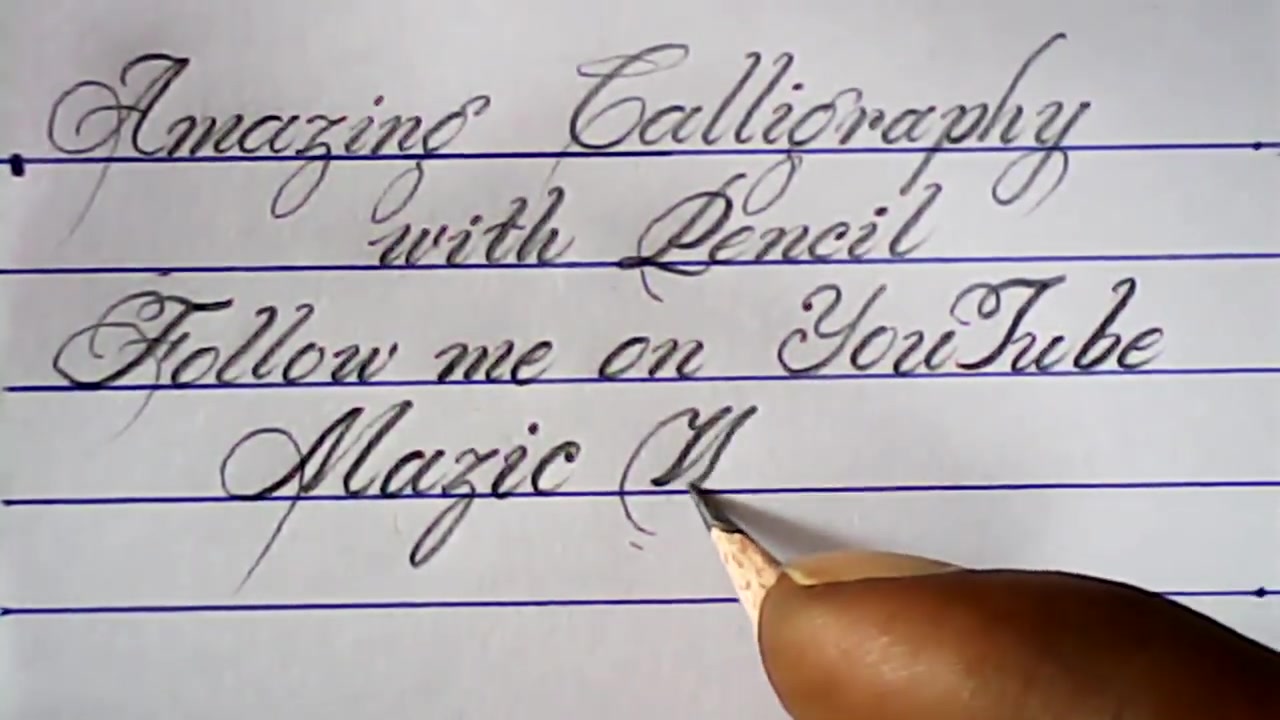 Amazing Calligraphy
with Pencil
Follow me on YouTube
Mazic